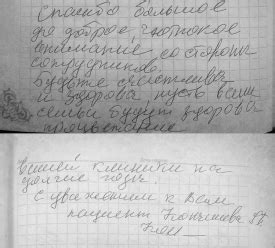 Спасибо большое
за доброе, чуткое
внимание со стороны
сотрудников.
Будьте счастлива
и здорова пусть ваши
семьи будут здорова
процветание
Вашей клиники на
долгие годы.
С уважением к Вам
пациент